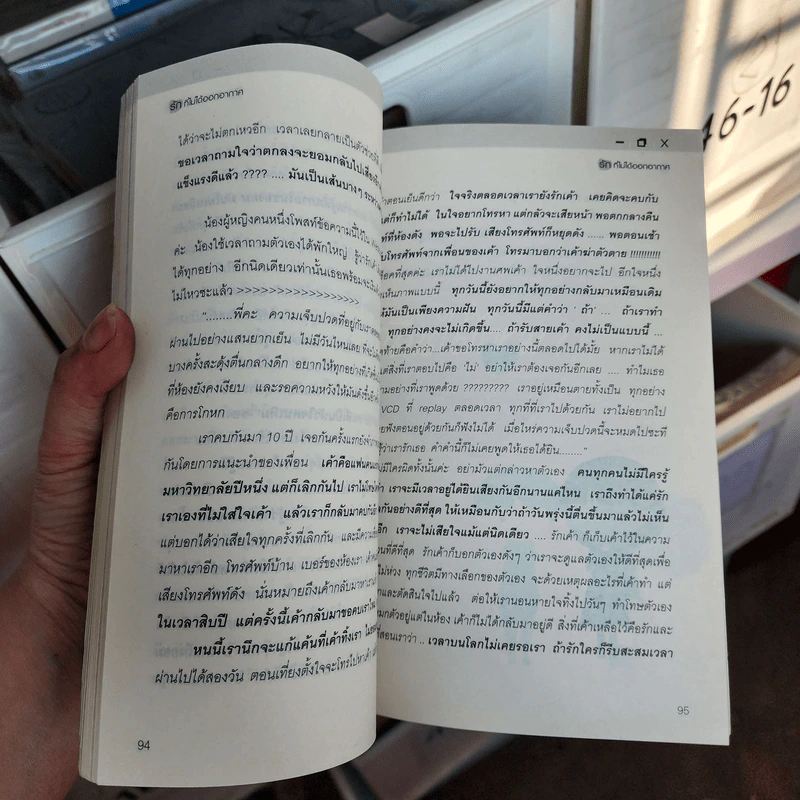 รัก ที่ไม่ได้ออกอากาศ
ได้ว่าจะไม่ตกเหวอีก เวลาเลยกลายเป็นตัว
ขอเวลาถามใจว่าตกลงจะยอมกลับไปเสี่ยง
แข็งแรงดีแล้ว ???? .... มันเป็นเส้นบางๆ
น้องผู้หญิงคนหนึ่งโพสท์ข้อความนี้ไว้ใน
ค่ะ น้องใช้เวลาถามตัวเองได้พักใหญ่ รู้ว่ารัก
ได้ทุกอย่าง อีกนิดเดียวเท่านั้นเธอพร้อมจะ
ไม่ไหวซะแล้ว >>>>>>>>>>>>>>>>>>>
"........พี่คะ ความเจ็บปวดที่อยู่กับ
ผ่านไปอย่างแสนยากเย็น ไม่มีวันไหนเลย
บางครั้งสะดุ้งตื่นกลางดึก อยากให้ทุกอย่างที่
ที่ห้องยังคงเงียบ และรอความหวังให้มันดังขึ้น
คือการโกหก
เราคบกันมา 10 ปี เจอกันครั้งแรกยังจำ
กันโดยการแนะนำของเพื่อน เค้าคือแฟนคน
มหาวิทยาลัยปีหนึ่ง แต่ก็เลิกกันไป เราไม่โทษ
เราเองที่ไม่ใส่ใจเค้า แล้วเราก็กลับมาคบกัน
แต่บอกได้ว่าเสียใจทุกครั้งที่เลิกกัน และมีความ
มาหาเราอีก โทรศัพท์บ้าน เบอร์ของห้องเรา
เสียงโทรศัพท์ดัง นั่นหมายถึงเค้ากลับมาหา
ในเวลาสิบปี แต่ครั้งนี้เค้ากลับมาขอคบเรา
หนนี้เรานึกจะแก้แค้นที่เค้าทิ้งเรา
ผ่านไปได้สองวัน ตอนเที่ยงตั้งใจจะโทรไปหาเค้า
94
รัก ที่ไม่ได้ออกอากาศ
ตอนเย็นดีกว่า ใจจริงตลอดเวลาเรายังรักเค้า เคยคิดจะคบกับ
แต่ก็ทำไม่ได้ ในใจอยากโทรหา แต่กลัวจะเสียหน้า พอตกกลางคืน
ที่ห้องดัง พอจะไปรับ เสียงโทรศัพท์ก็หยุดดัง ...... พอตอนเช้า
โทรศัพท์จากเพื่อนของเค้า โทรมาบอกว่าเค้าฆ่าตัวตาย !!!!!!!!!!!
ช็อคที่สุดค่ะ เราไม่ได้ไปงานศพเค้า ใจหนึ่งอยากจะไป อีกใจหนึ่ง
เห็นภาพแบบนี้ ทุกวันนี้ยังอยากให้ทุกอย่างกลับมาเหมือนเดิม
ให้มันเป็นเพียงความฝัน ทุกวันนี้มีแต่คำว่า ' ถ้า' ... ถ้าเราทำ
ทุกอย่างคงจะไม่เกิดขึ้น.... ถ้ารับสายเค้า คงไม่เป็นแบบนี้ ...
ท้ายคือคำว่า...เค้าขอโทรหาเราอย่างนี้ตลอดไปได้มั้ย หากเราไม่ได้
แต่สิ่งที่เราตอบไปคือ 'ไม่' อย่าให้เราต้องเจอกันอีกเลย .... ทำไมเธอ
ตามอย่างที่เราพูดด้วย ????????? เราอยู่เหมือนตายทั้งเป็น ทุกอย่าง
VCD ที่ replay ตลอดเวลา ทุกที่ที่เราไปด้วยกัน เราไม่อยากไป
ฟังตอนอยู่ด้วยกันก็ฟังไม่ได้ เมื่อไหร่ความเจ็บปวดนี้จะหมดไปซะที
ว่าเรารักเธอ คำคำนี้ก็ไม่เคยพูดให้เธอได้ยิน........"
มีใครผิดทั้งนั้นค่ะ อย่ามัวแต่กล่าวหาตัวเอง คนทุกคนไม่มีใครรู้
เราจะมีเวลาอยู่ได้ยินเสียงกันอีกนานแค่ไหน เราถึงทำได้แค่รัก
กันอย่างดีที่สุด ให้เหมือนกับว่าถ้าวันพรุ่งนี้ตื่นขึ้นมาแล้วไม่เห็น
อีก เราจะไม่เสียใจแม้แต่นิดเดียว .... รักเค้า ก็เก็บเค้าไว้ในความ
ที่ดีที่สุด รักเค้าก็บอกตัวเองดังๆ ว่าเราจะดูแลตัวเองให้ดีที่สุดเพื่อ
ไม่ห่วง ทุกชีวิตมีทางเลือกของตัวเอง จะด้วยเหตุผลอะไรที่เค้าทำ แต่
และตัดสินใจไปแล้ว ต่อให้เรานอนหายใจทิ้งไปวันๆ ทำโทษตัวเอง
ตัวอยู่แต่ในห้อง เค้าก็ไม่ได้กลับมาอยู่ดี สิ่งที่เค้าเหลือไว้คือรักและ
สอนเราว่า .. เวลาบนโลกไม่เคยรอเรา ถ้ารักใครก็รีบสะสมเวลา
95
46-16
2